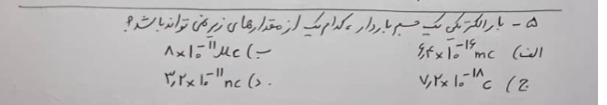 ۵- بار الکتریکی یک جسم باردار، کدام یک از مقدارهای زیر نمی تواند باشد؟
الف) ۶٫۴×۱۰^-۱۶ mc ب) ۸×۱۰^-۱۱ μc
ج) ۷٫۲×۱۰^-۱۸ c د) ۳٫۲×۱۰^-۱۱ nc